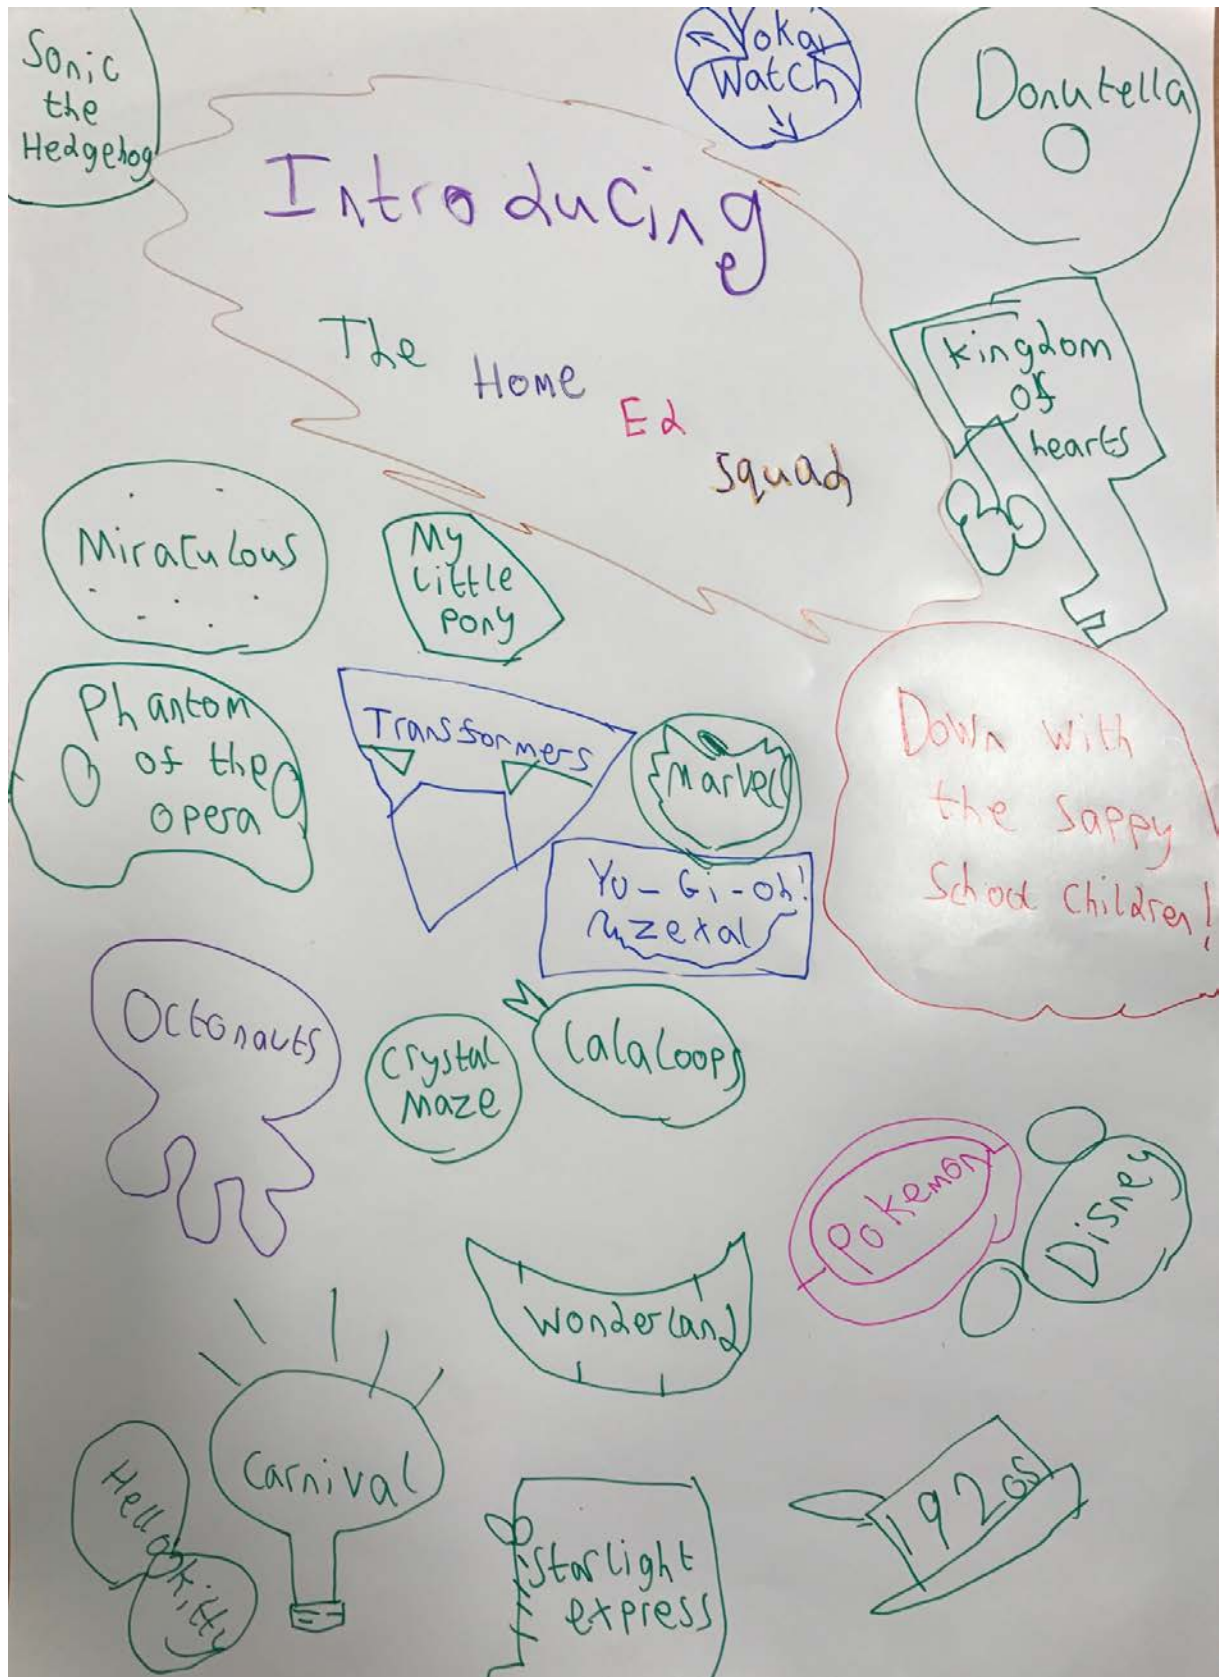 Sonic
the
Hedgehog
Yokai
Watch
Donutella
Introducing
The Home Ed squad
Kingdom
of
hearts
Miraculous
My
Little
Pony
Phantom
of the
opera
Transformers
Marvel
Down with
the sappy
School Children!
Yu-Gi-Oh!
zexal
Octonauts
Crystal
Maze
LalaLoops
Pokemon
Disney
Wonderland
Carnival
Hello
kitty
Starlight
express
1920s